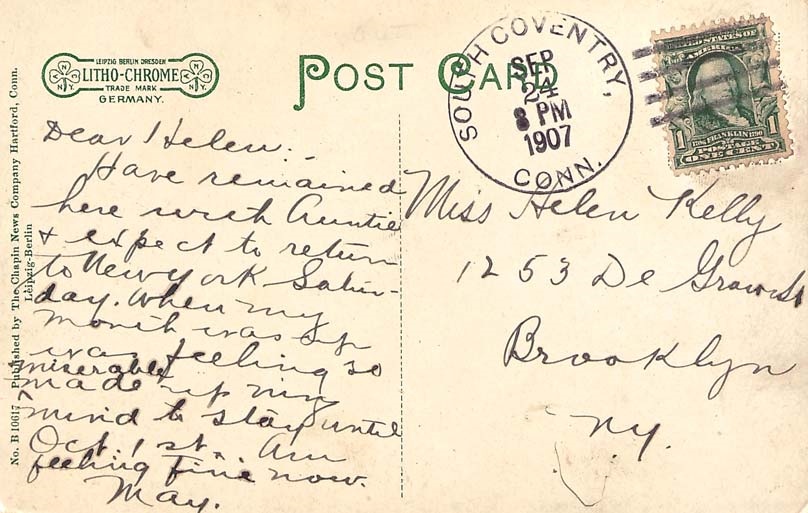 LEIPZIG BERLIN DRESDEN
LITHO-CHROME
TRADE MARK
GERMANY.
N N
N.Y. N.Y.
POST CARD
SOUTH COVENTRY,
SEP
24
8 PM
1907
CONN.
UNITED STATES OF
AMERICA
1 1
1706 FRANKLIN 1790
POSTAGE
ONE CENT
No. B 10617 Published by The Chapin News Company Hartford, Conn.
Leipzig-Berlin
Dear Helen:
Have remained
here with Auntie
& expect to return
to New York Satur-
day. When my
month was up
was feeling so
miserable
made up my
mind to stay until
Oct. 1st. Am
feeling fine now.
May.
Miss Helen Kelly
1253 De Graw St
Brooklyn
N.Y.